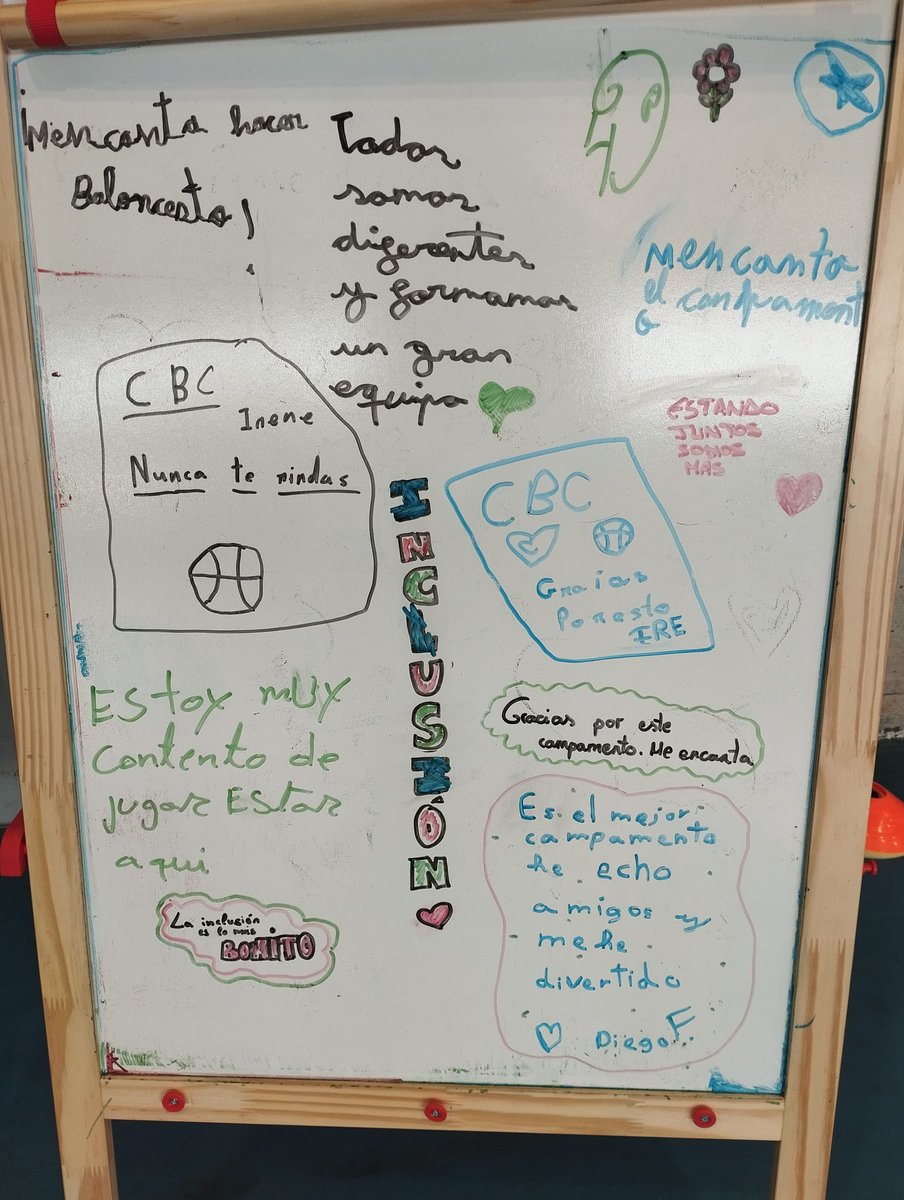 ¡Mencanta hacer
Baloncesto!
Todos
somos
diferentes
y formamos
un gran
equipo
Mencanta
el
campament
o
ESTANDO
JUNTOS
SOMOS
MAS
CBC
Irene
Nunca te rindas
INCLUSIÓN
CBC
Gracias
Por esto
IRE
EStoy mUY
contento de
jugar EStar
aqui
Gracias por este
campamento. Me encanta
La inclusión
es lo más
BONITO
Es el mejor
campamento
he echo
amigos y
me he
divertido
Diego F.